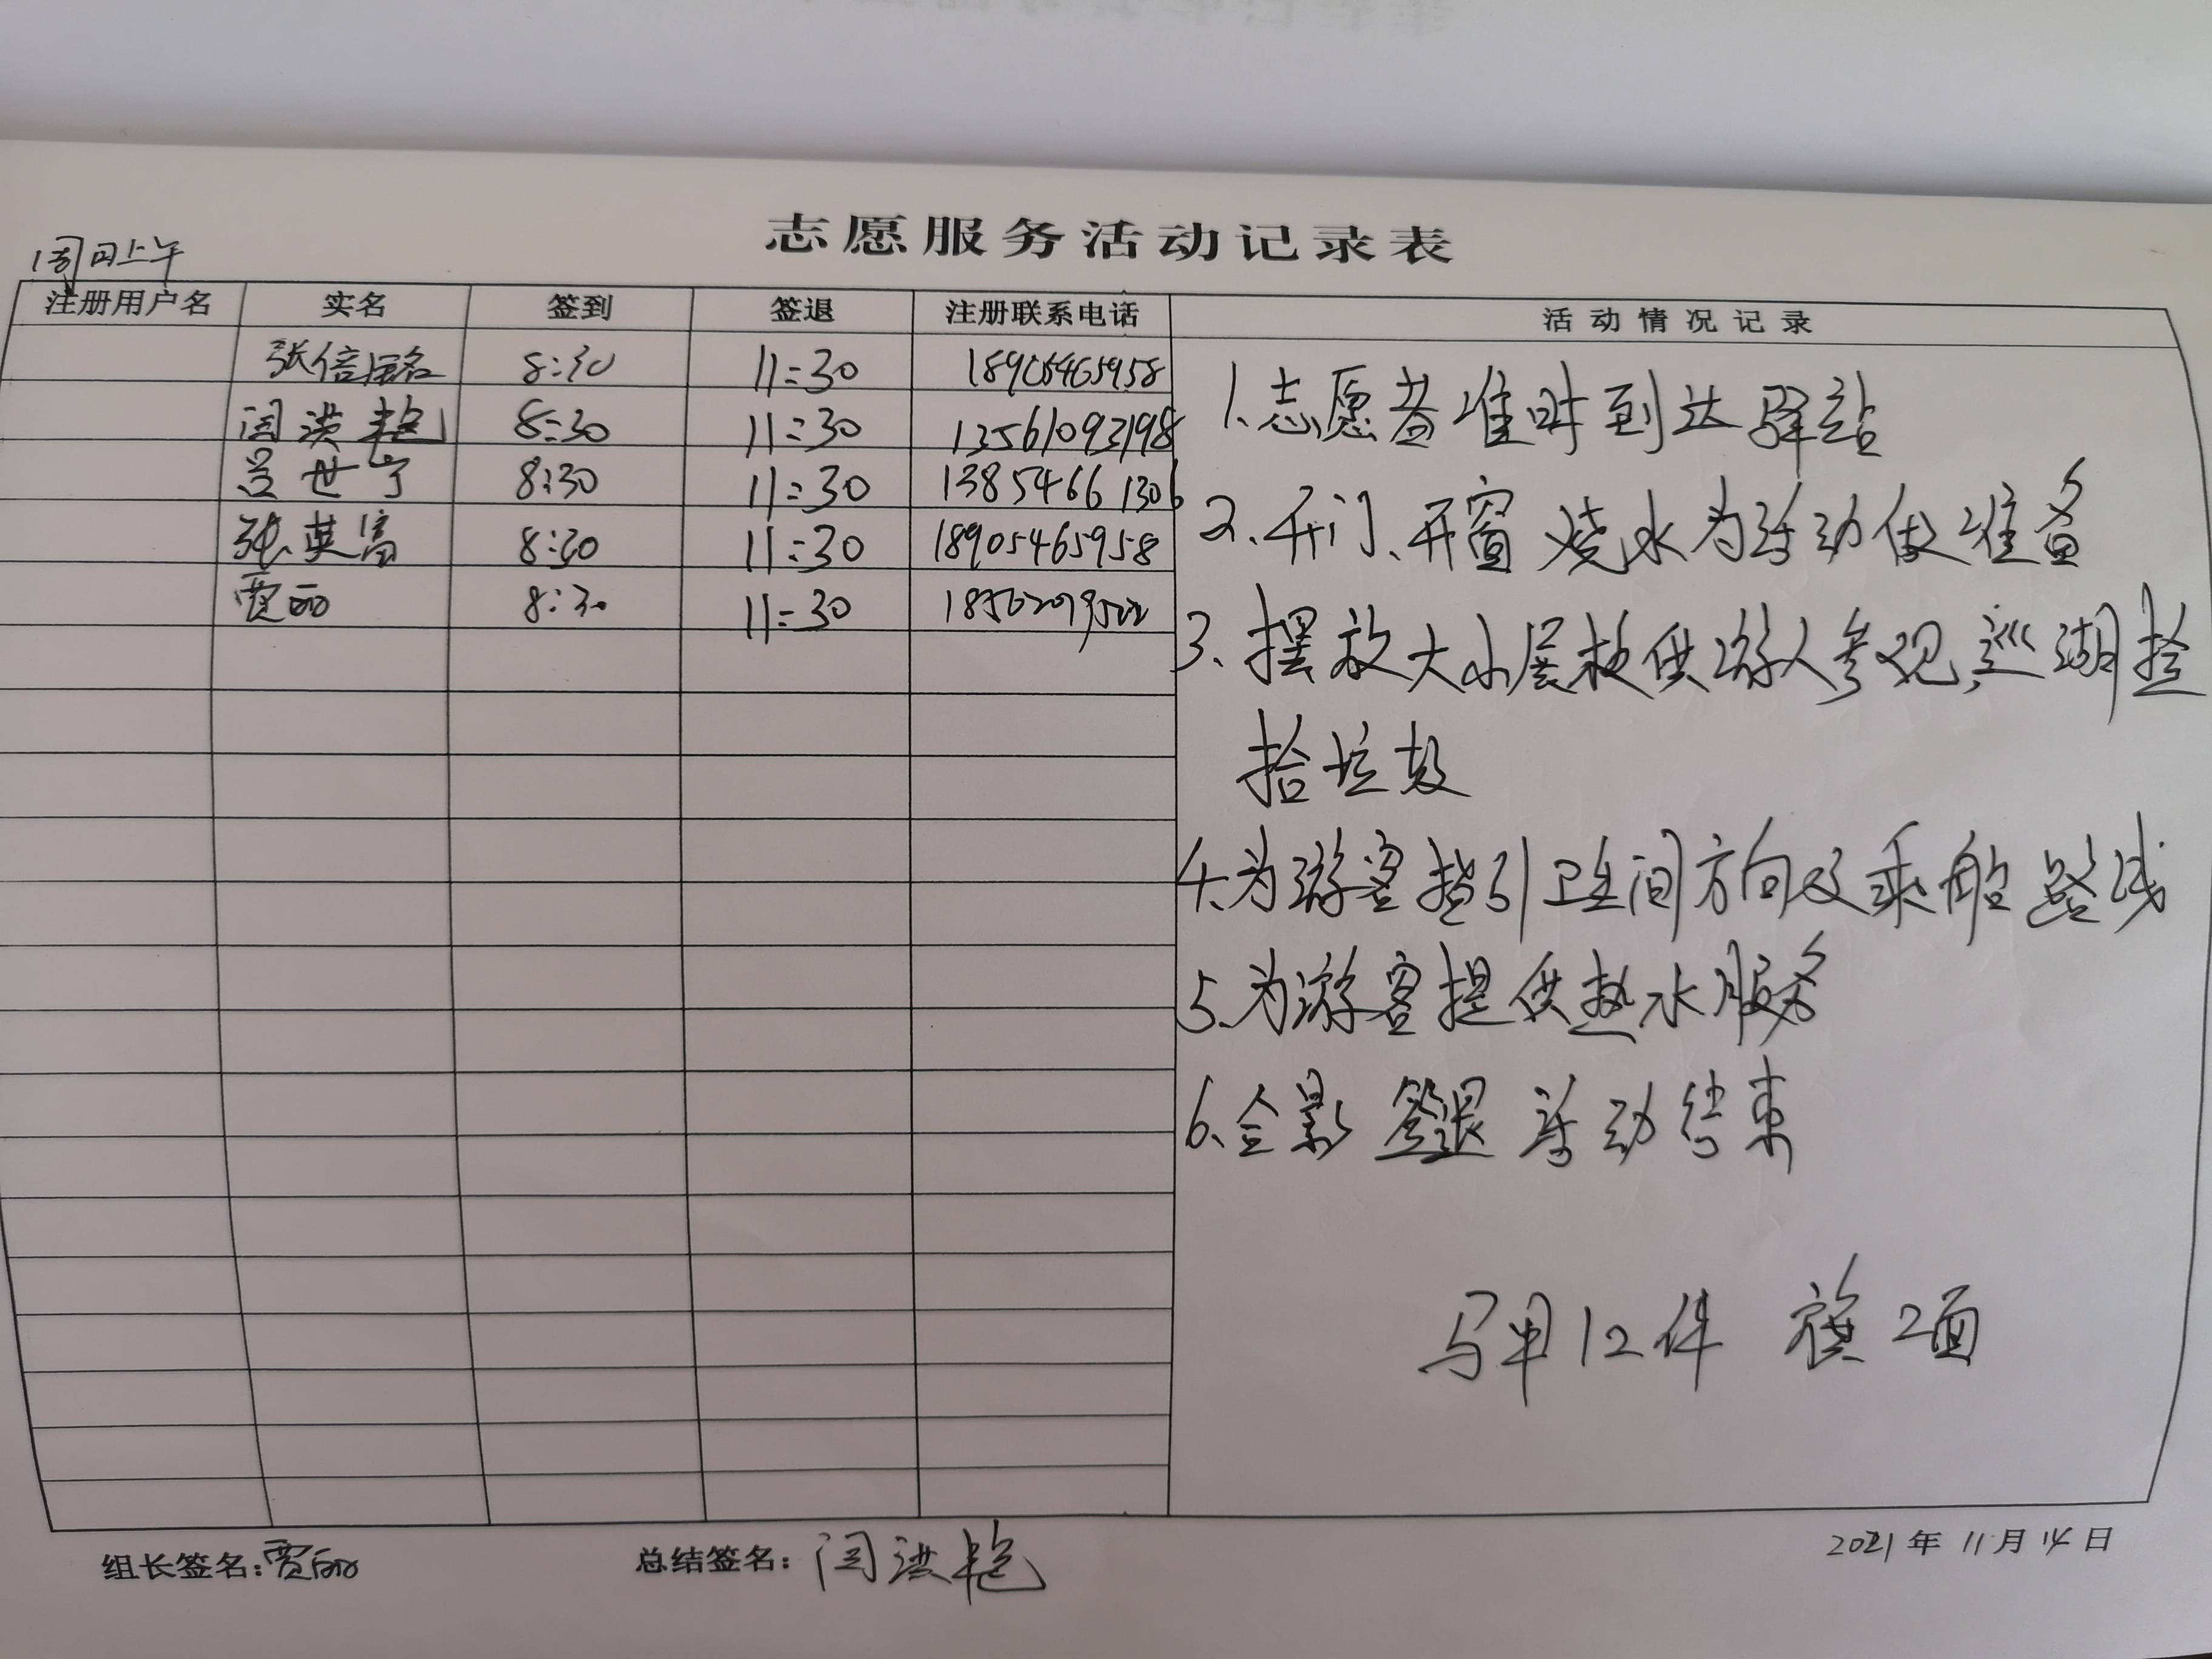 志愿服务活动记录表
周日上午
注册用户名 实名 签到 签退 注册联系电话 活动情况记录
张倍铭 8:30 11:30 18905465958
闫洪艳 8:30 11:30 13561093198
吕世宁 8:30 11:30 13854661306
张英富 8:30 11:30 18905465958
贾丽 8:30 11:30
1、志愿者准时到达驿站
2、开门、开窗 烧水为活动做准备
3、摆放大小展板供游人参观,巡湖捡
拾垃圾
4、为游客指引卫生间方向及乘船路线
5、为游客提供热水服务
6、合影 签退 活动结束
马甲12件 旗2面
组长签名:贾丽 总结签名:闫洪艳 2021年11月14日